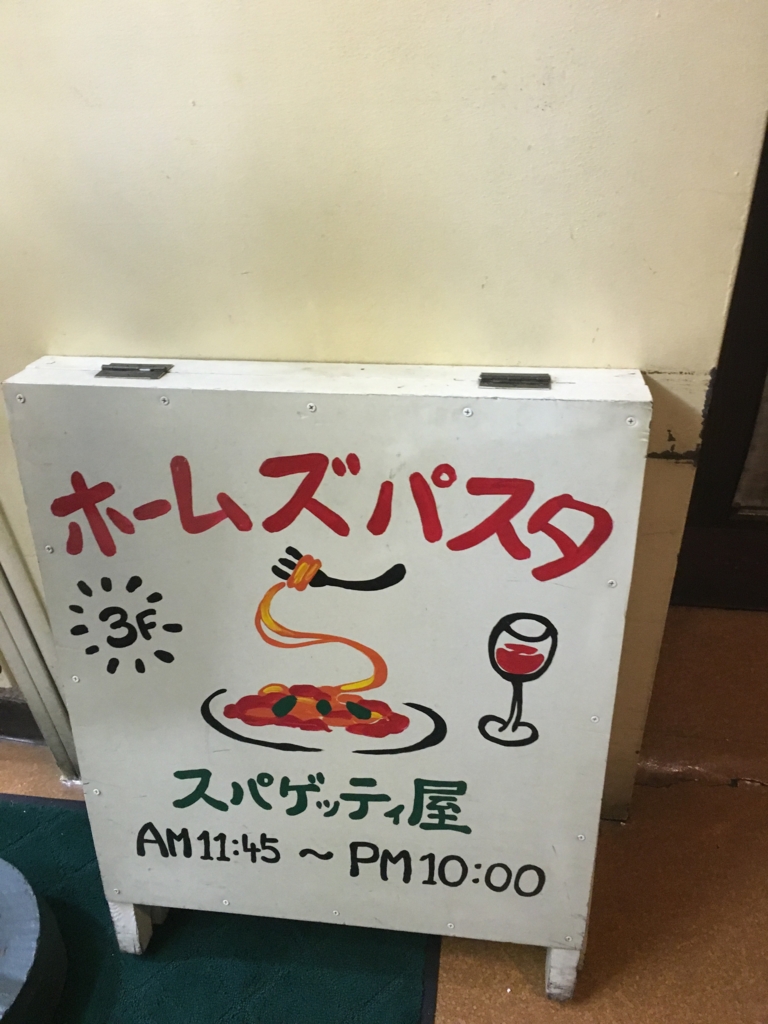 ホームズパスタ
3F
スパゲッティ屋
AM11:45 〜 PM10:00